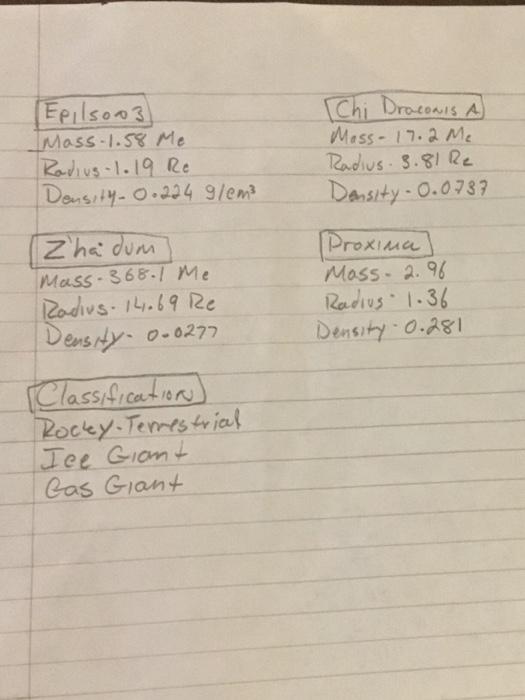 Epilson3
Mass-1.58 Me
Radius-1.19 Re
Density-0.224 g/cm³
Chi Draconis A
Mass-17.2 Me
Radius-3.81 Re
Density-0.0737
Z'ha'dum
Mass-368.1 Me
Radius-14.69 Re
Density-0.0277
Proxima
Mass-2.96
Radius-1.36
Density-0.281
Classification
Rocky-Terrestrial
Ice Giant
Gas Giant